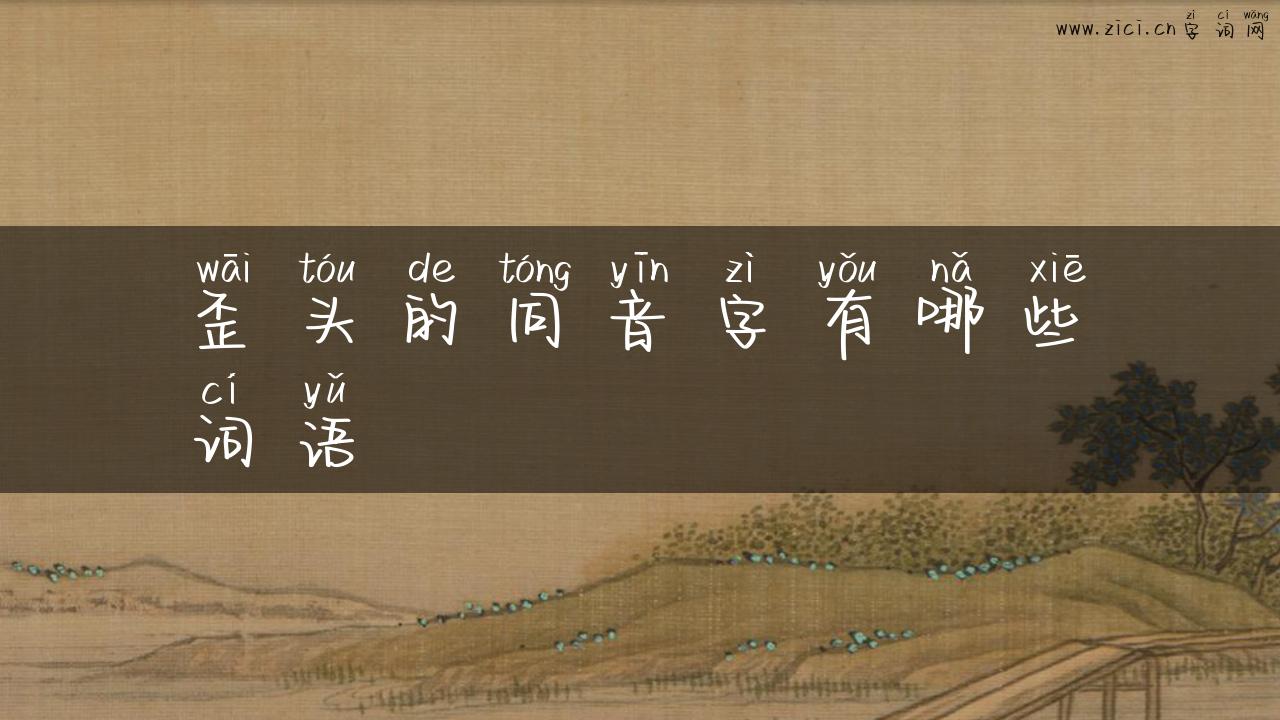 zì cí wǎng
www.zici.cn 字词网
wāi tóu de tóng yīn zì yǒu nǎ xiē
歪头的同音字有哪些
cí yǔ
词语